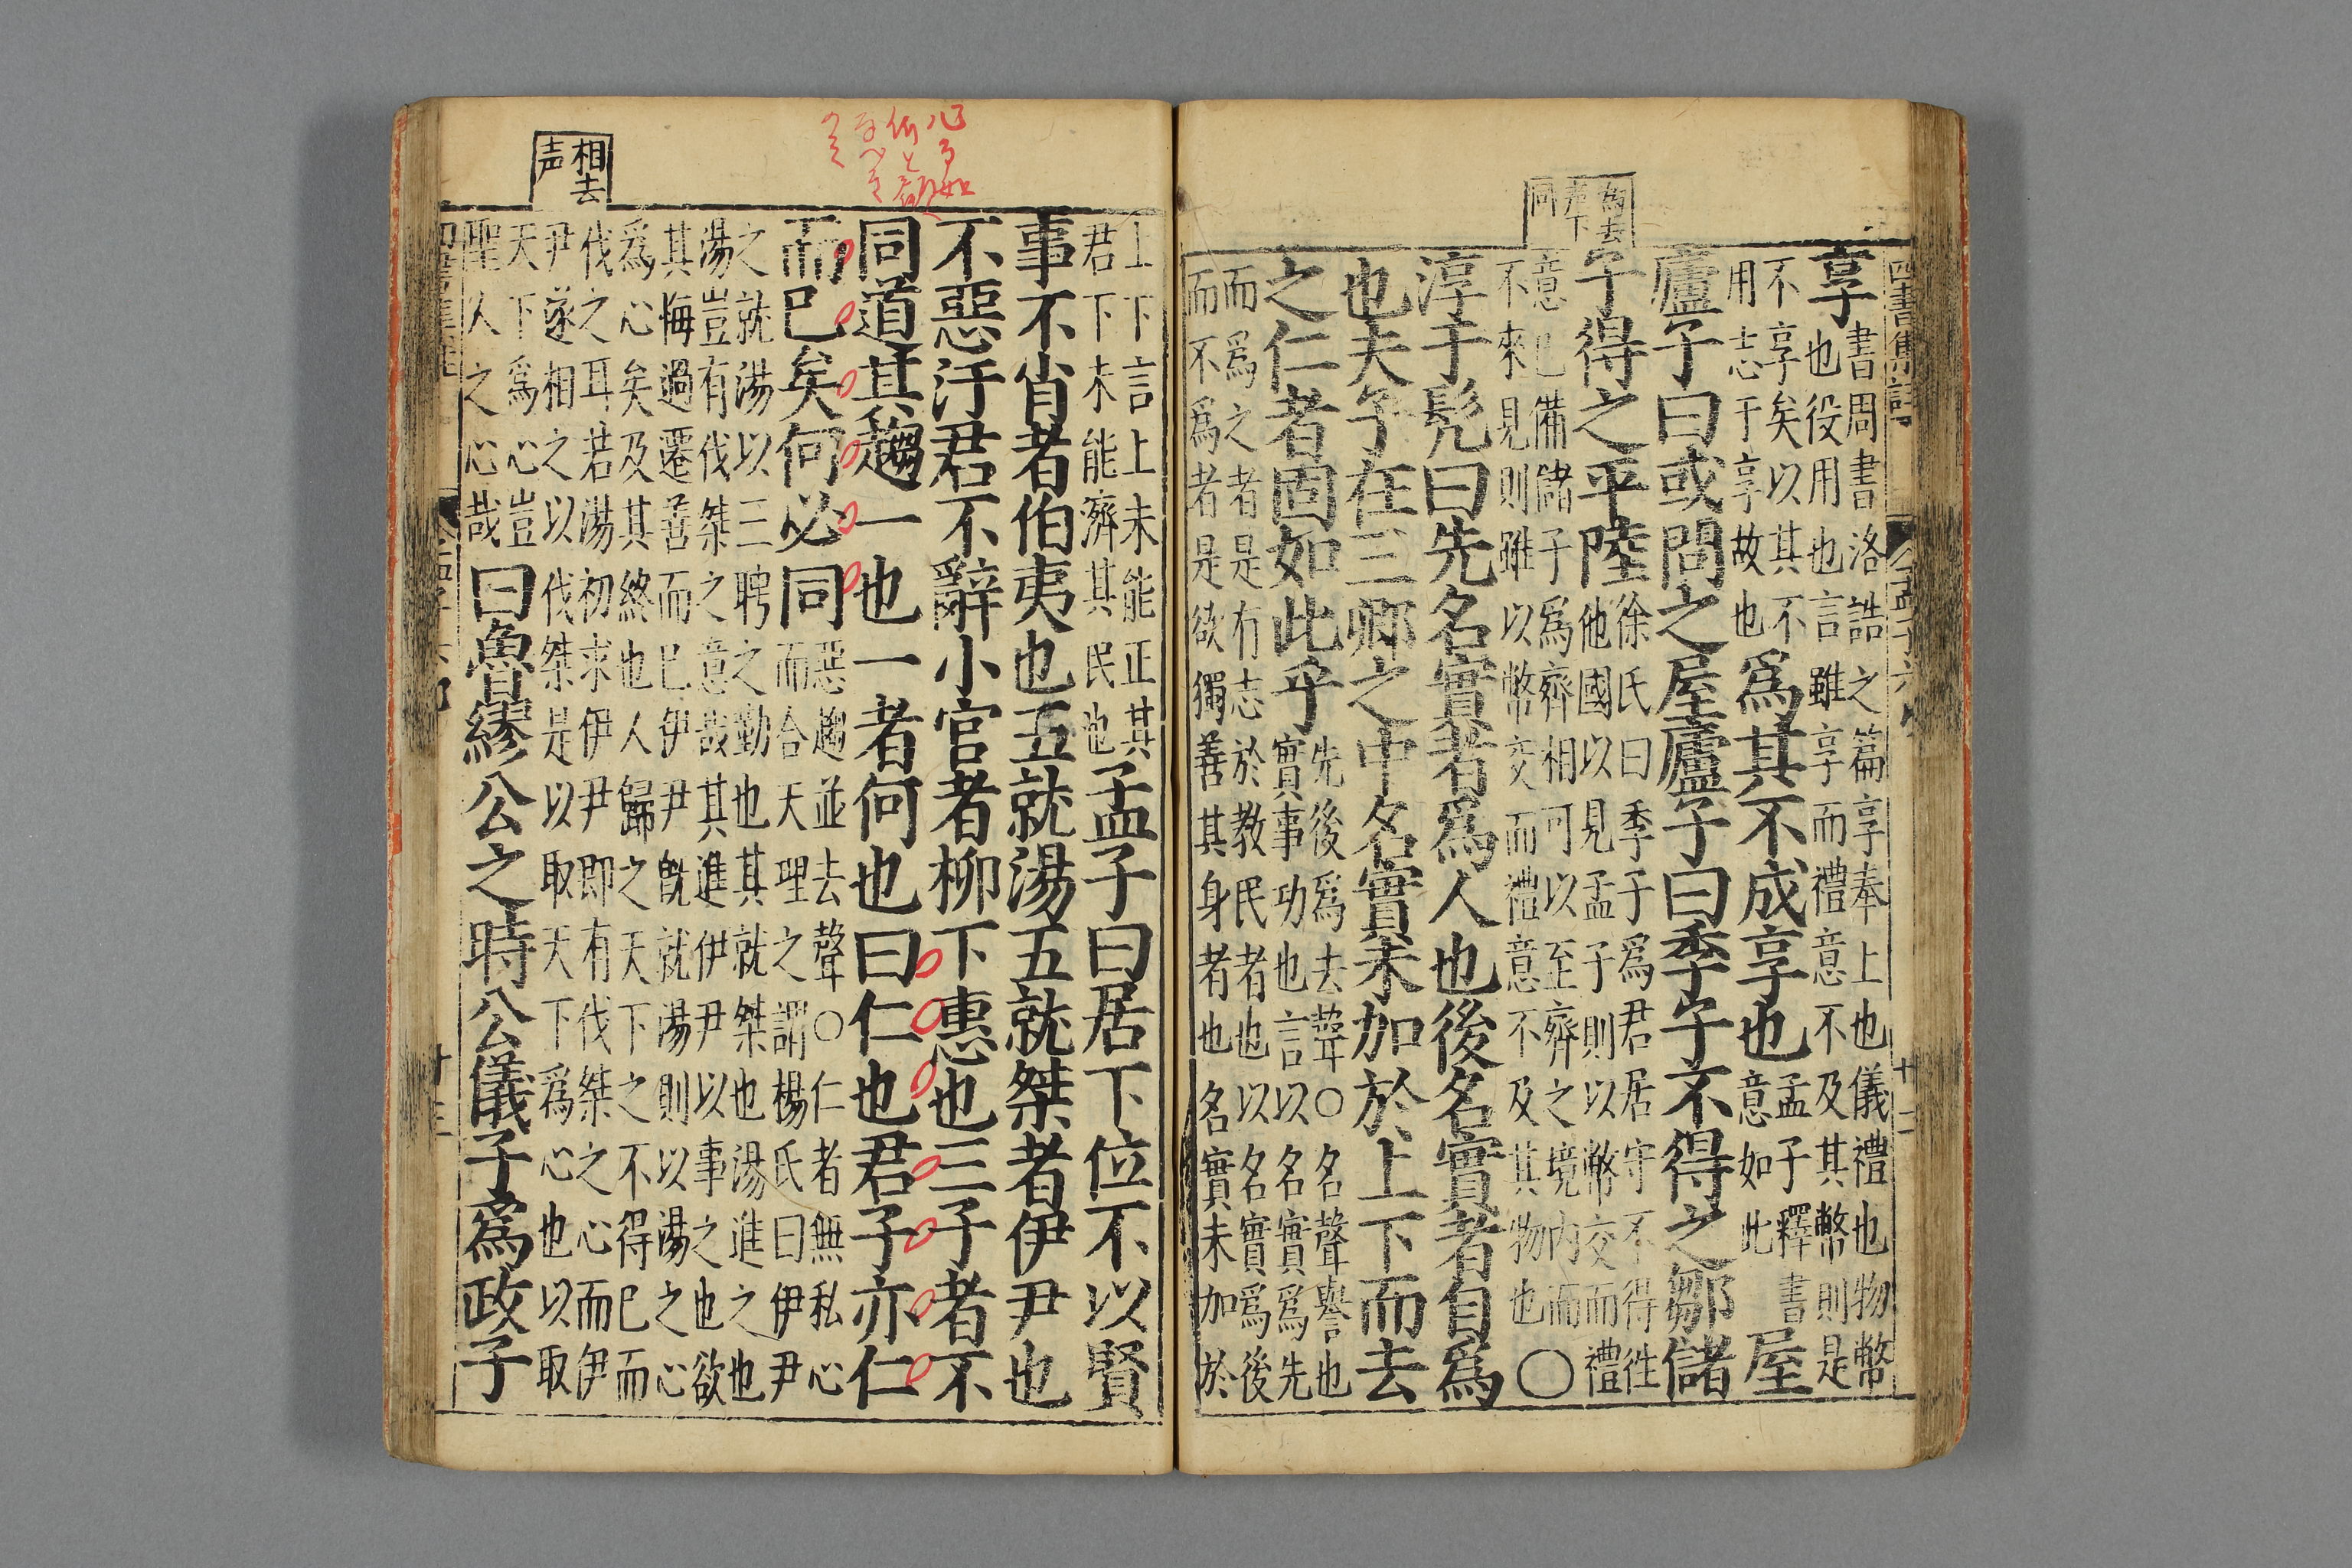 四書集註
享
書周書洛誥之篇享奉上也儀禮也物幣
也役用也言雖享而禮意不及其幣則是
不享矣以其不
用志于享故也
爲其不成享也
孟子釋書
意如此
屋
廬子曰或問之屋廬子曰季子不得之鄒儲
子得之平陸
徐氏曰季子爲君居守不得往
他國以見孟子則以幣交而禮
意已備儲子爲齊相可以至齊之境內而
不來見則雖以幣交而禮意不及其物也
○
淳于髡曰先名實者爲人也後名實者自爲
也夫子在三卿之中名實未加於上下而去
之仁者固如此乎
先後爲去聲○名聲譽也
實事功也言以名實爲先
而爲之者是有志於教民者也以名實爲後
而不爲者是欲獨善其身者也名實未加於
上下言上未能正其
君下未能濟其民也
孟子曰居下位不以賢
事不肖者伯夷也五就湯五就桀者伊尹也
不惡汙君不辭小官者柳下惠也三子者不
同道其趨一也一者何也曰仁也君子亦仁
而已矣何必同
惡趨並去聲○仁者無私心
而合天理之謂楊氏曰伊尹
之就湯以三聘之勤也其就桀也湯進之也
湯豈有伐桀之意哉其進伊尹以事之也欲
其悔過遷善而已伊尹既就湯則以湯之心
爲心矣及其終也人歸之天下之不得已而
伐之耳若湯初求伊尹即有伐桀之心而伊
尹遂相之以伐桀是以取天下爲心也以取
天下爲心豈
聖人之心哉
曰魯繆公之時公儀子爲政子
相去
声